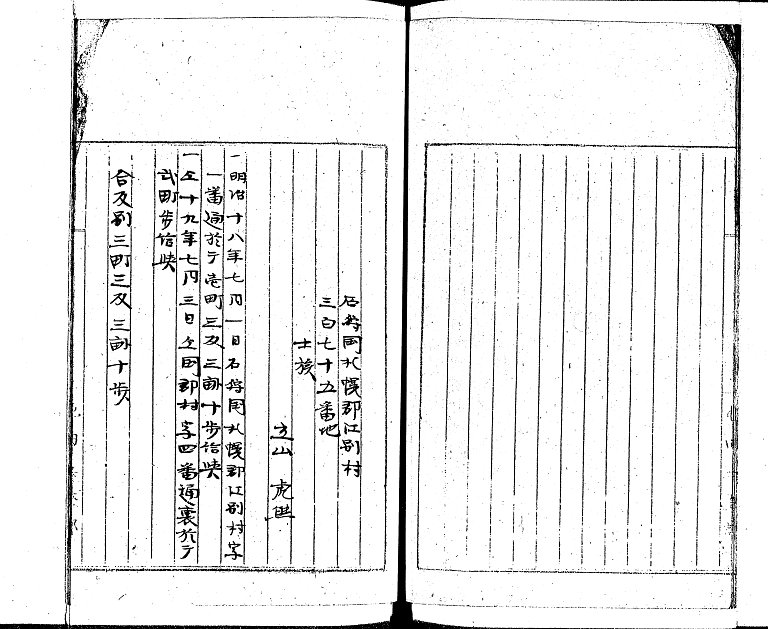 石狩国札幌郡江別村
三百七十五番地
士族
立山 虎
一明治十八年七月一日石狩国札幌郡江別村字
一番通於テ壱町三反三畝十歩給与
一仝十九年七月三日仝国郡村字四番通裏於テ
弐町歩給与
合反別三町三反三畝十歩